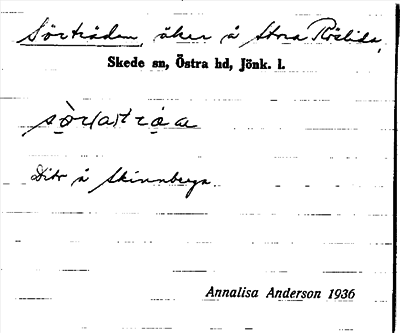 Sörträden, åker å Stora Röslida,
Skede sn, Östra hd, Jönk. l.
Dito å Skinnberga.
Annalisa Anderson 1936